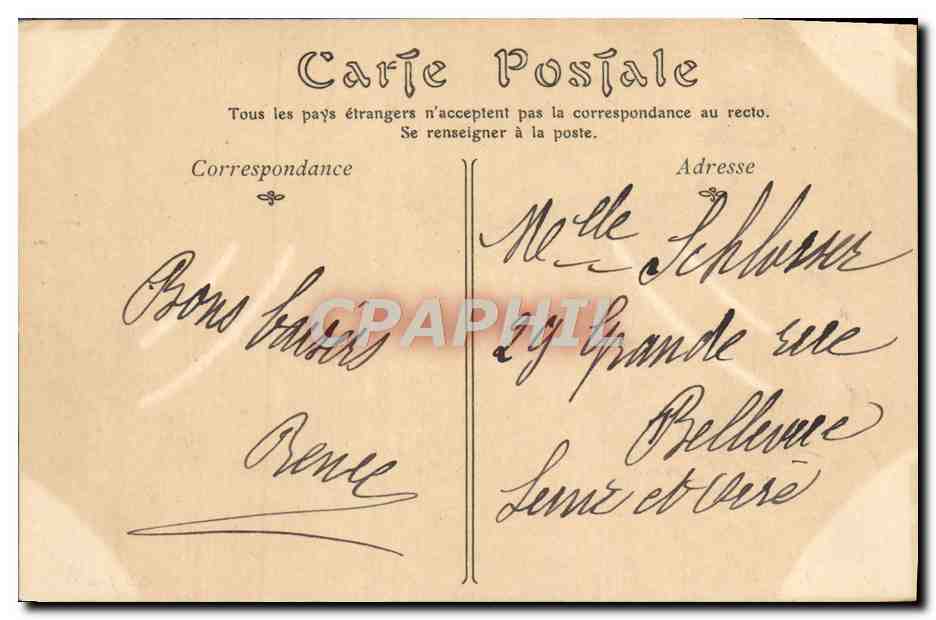 Carte Postale
Tous les pays étrangers n'acceptent pas la correspondance au recto.
Se renseigner à la poste.
Correspondance
Adresse
Bons baisers
Renee
Melle Schlosser
29 Grande rue
Bellevue
Seine et Oise
CPAPHIL